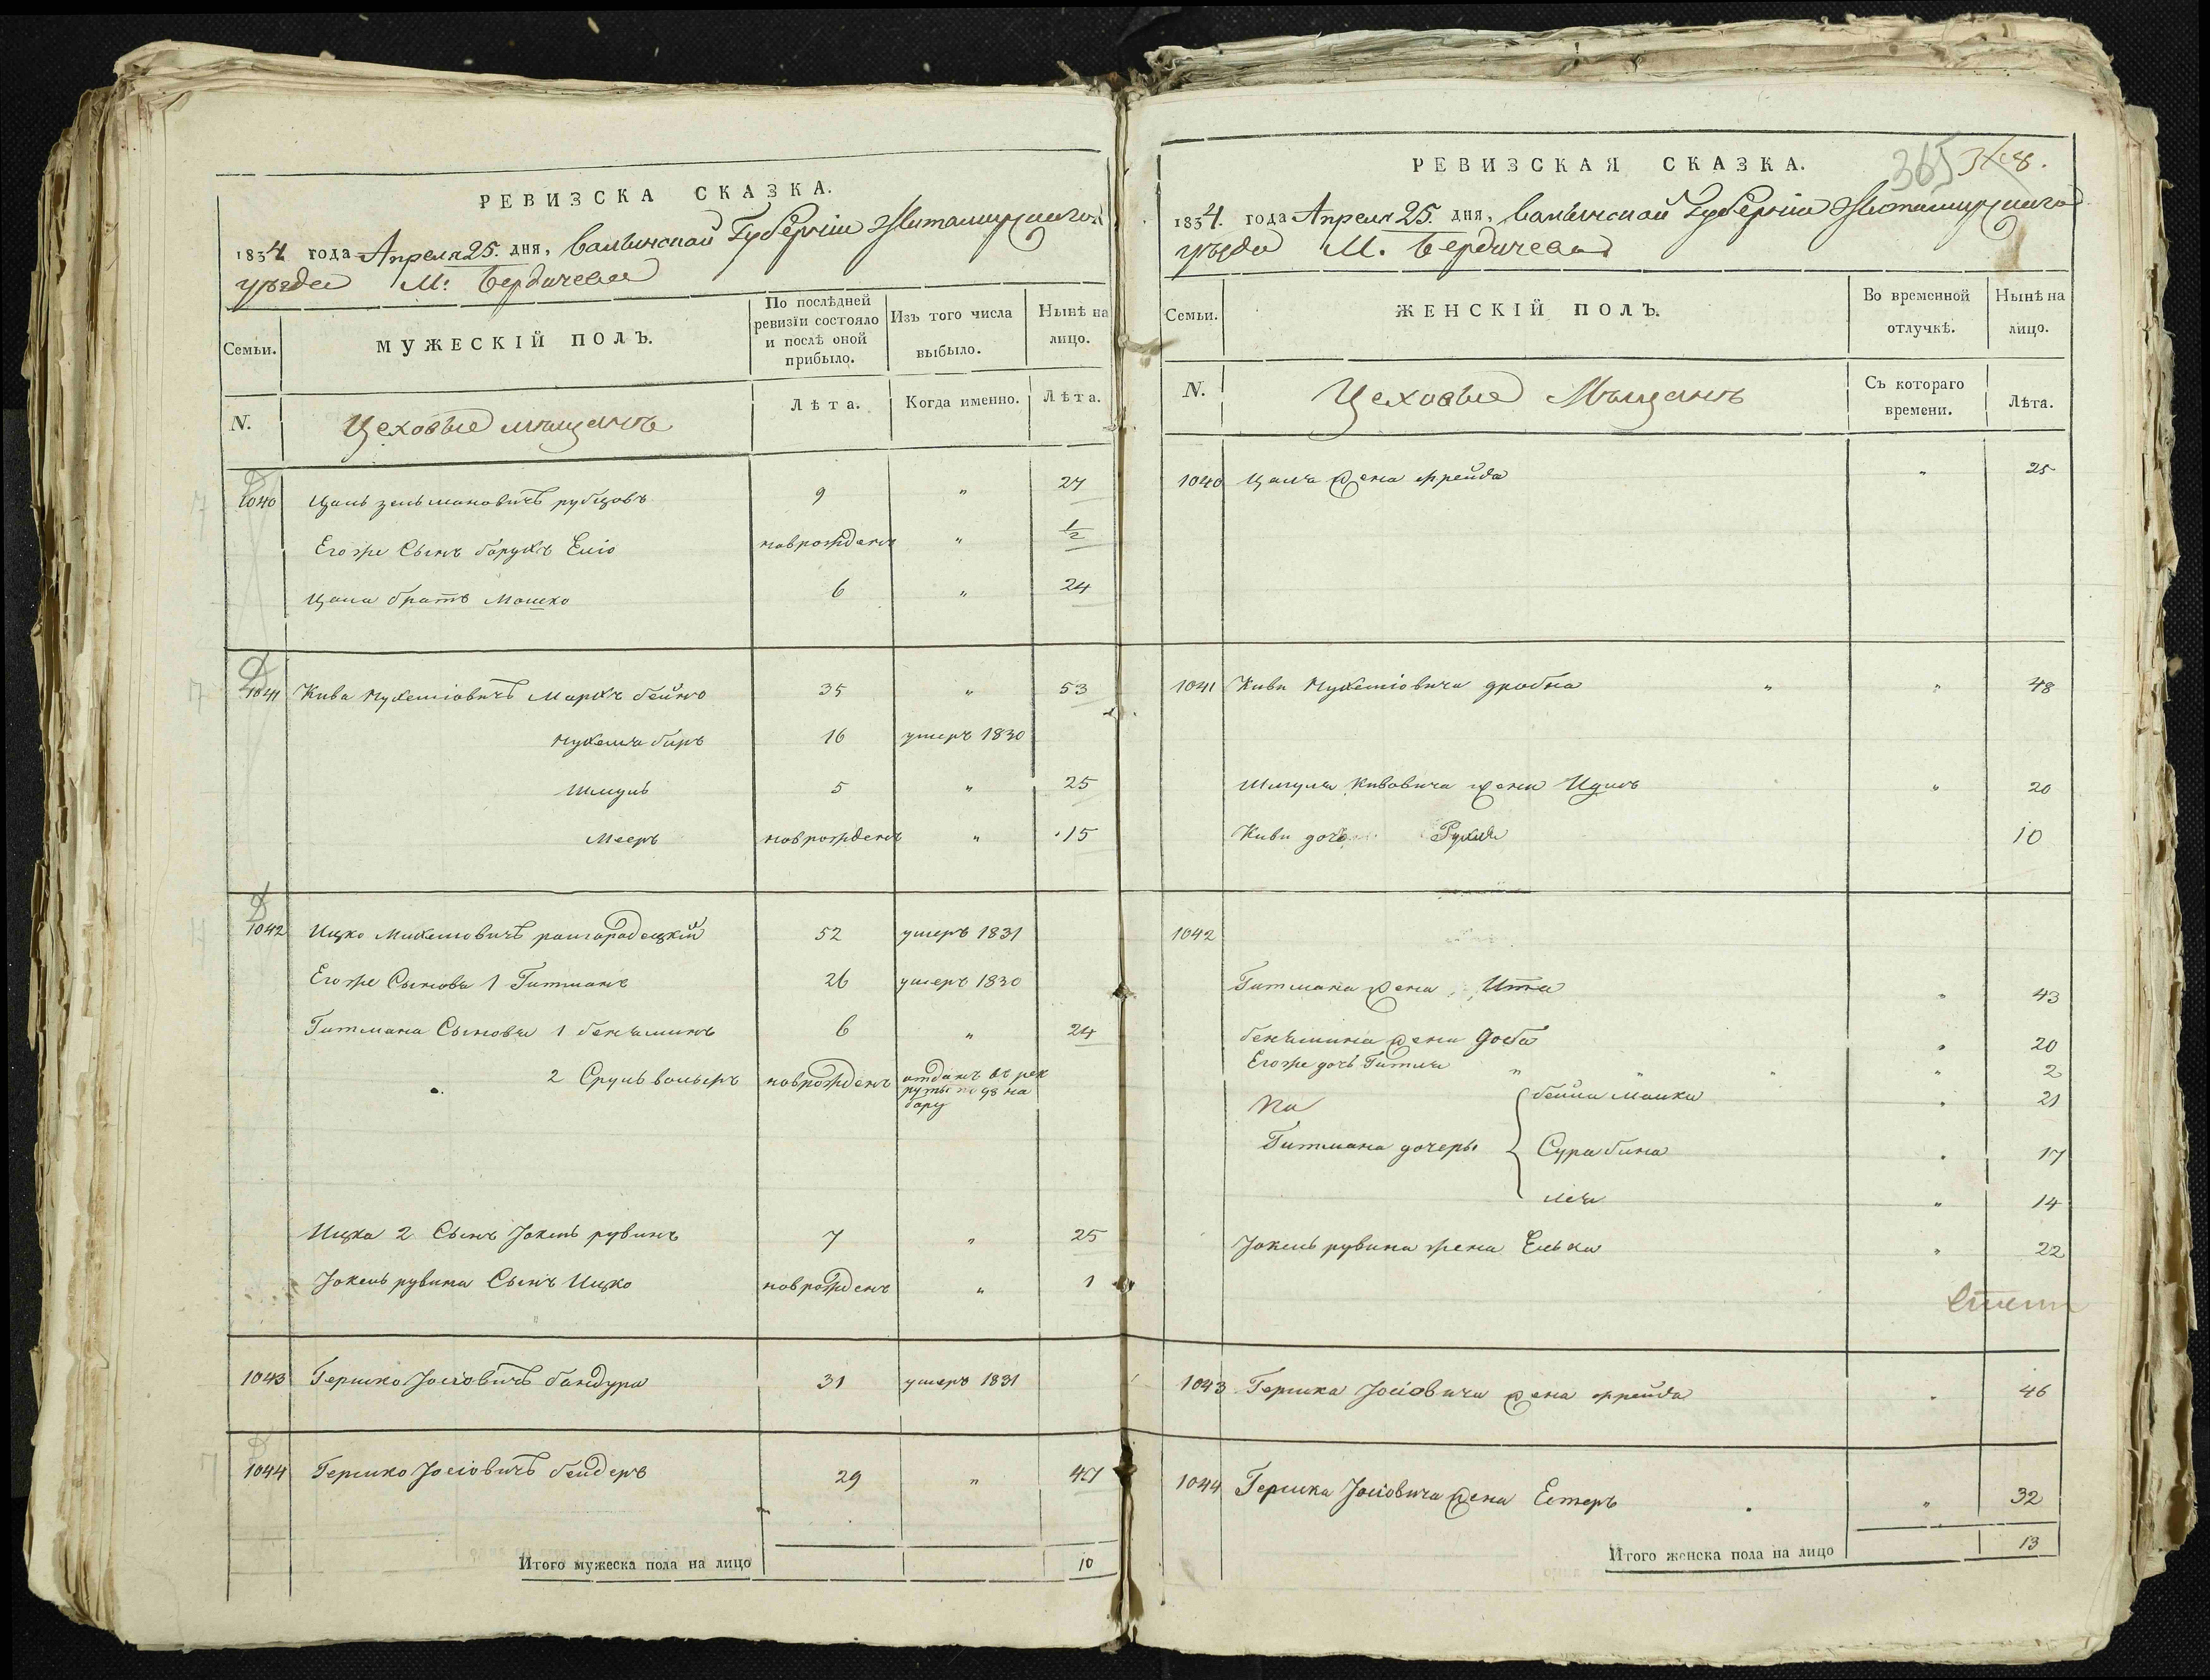 РЕВИЗСКА СКАЗКА.
1834 года Апреля 25. дня, Валынской Губерніи Житамирскаго
уѣзда М: Бердичева
Семьи.
МУЖЕСКІЙ ПОЛЪ.
По послѣдней
ревизіи состояло
и послѣ оной
прибыло.
Изъ того числа
выбыло.
Нынѣ на
лицо.
N.
Цеховые мѣщанѣ
Лѣта.
Когда именно.
Лѣта.
1040 Цаль зельмановичъ рубцовъ 9 " 27
Егоже Сынъ барухъ Еліо новрожденъ " 1/2
Цаля братъ Мошко 6 " 24
1041 Кива Нухемiовичъ 35 " 53
16 умеръ 1830
Шмуль 5 " 25
Мееръ новрожденъ " 15
1042 Ицко Михелiовичъ 52 умеръ 1831
Егоже Сыновья 1 Гитманъ 26 умеръ 1830
Гитмана Сыновья 1 беньяминъ 6 " 24
2 Сруль вольфъ новрожденъ отданъ въ рек
руты по 98 на
бору
Ицка 2 Сынъ Іокель рувинъ 7 " 25
Іокель рувина Сынъ Ицко новрожденъ " 1
1043 Гершко Іосіовичъ бандура 31 умеръ 1831
1044 Гершко Іосіовичъ бендеръ 29 " 47
Итого мужеска пола на лицо 10
РЕВИЗСКАЯ СКАЗКА.
365
1834. года Апреля 25. дня, Валынской Губерніи Житамирскаго
уѣзда М. Бердичева
Семьи.
ЖЕНСКІЙ ПОЛЪ.
Во временной
отлучкѣ.
Нынѣ на
лицо.
N.
Цеховые Мѣщанѣ
Съ котораго
времени.
Лѣта.
1040 Цаля жена фрейда " 25
1041 Киви Нухемiовича " " 48
Шмуля Кивовича жена " 20
Киви дочь Рухля 10
1042
Гитмана жена Ита " 43
беньямина жена Доба " 20
Егоже дочь Гитля " " " " 2
бейла Малка " 21
Гитмана дочеры Сура бина " 17
Лея " 14
Іокель рувина жена Елька " 22
1043 Гершка Іосіовича жена фрейда " 46
1044 Гершка Іосіовича жена Естеръ " 32
Итого женска пола на лицо 13